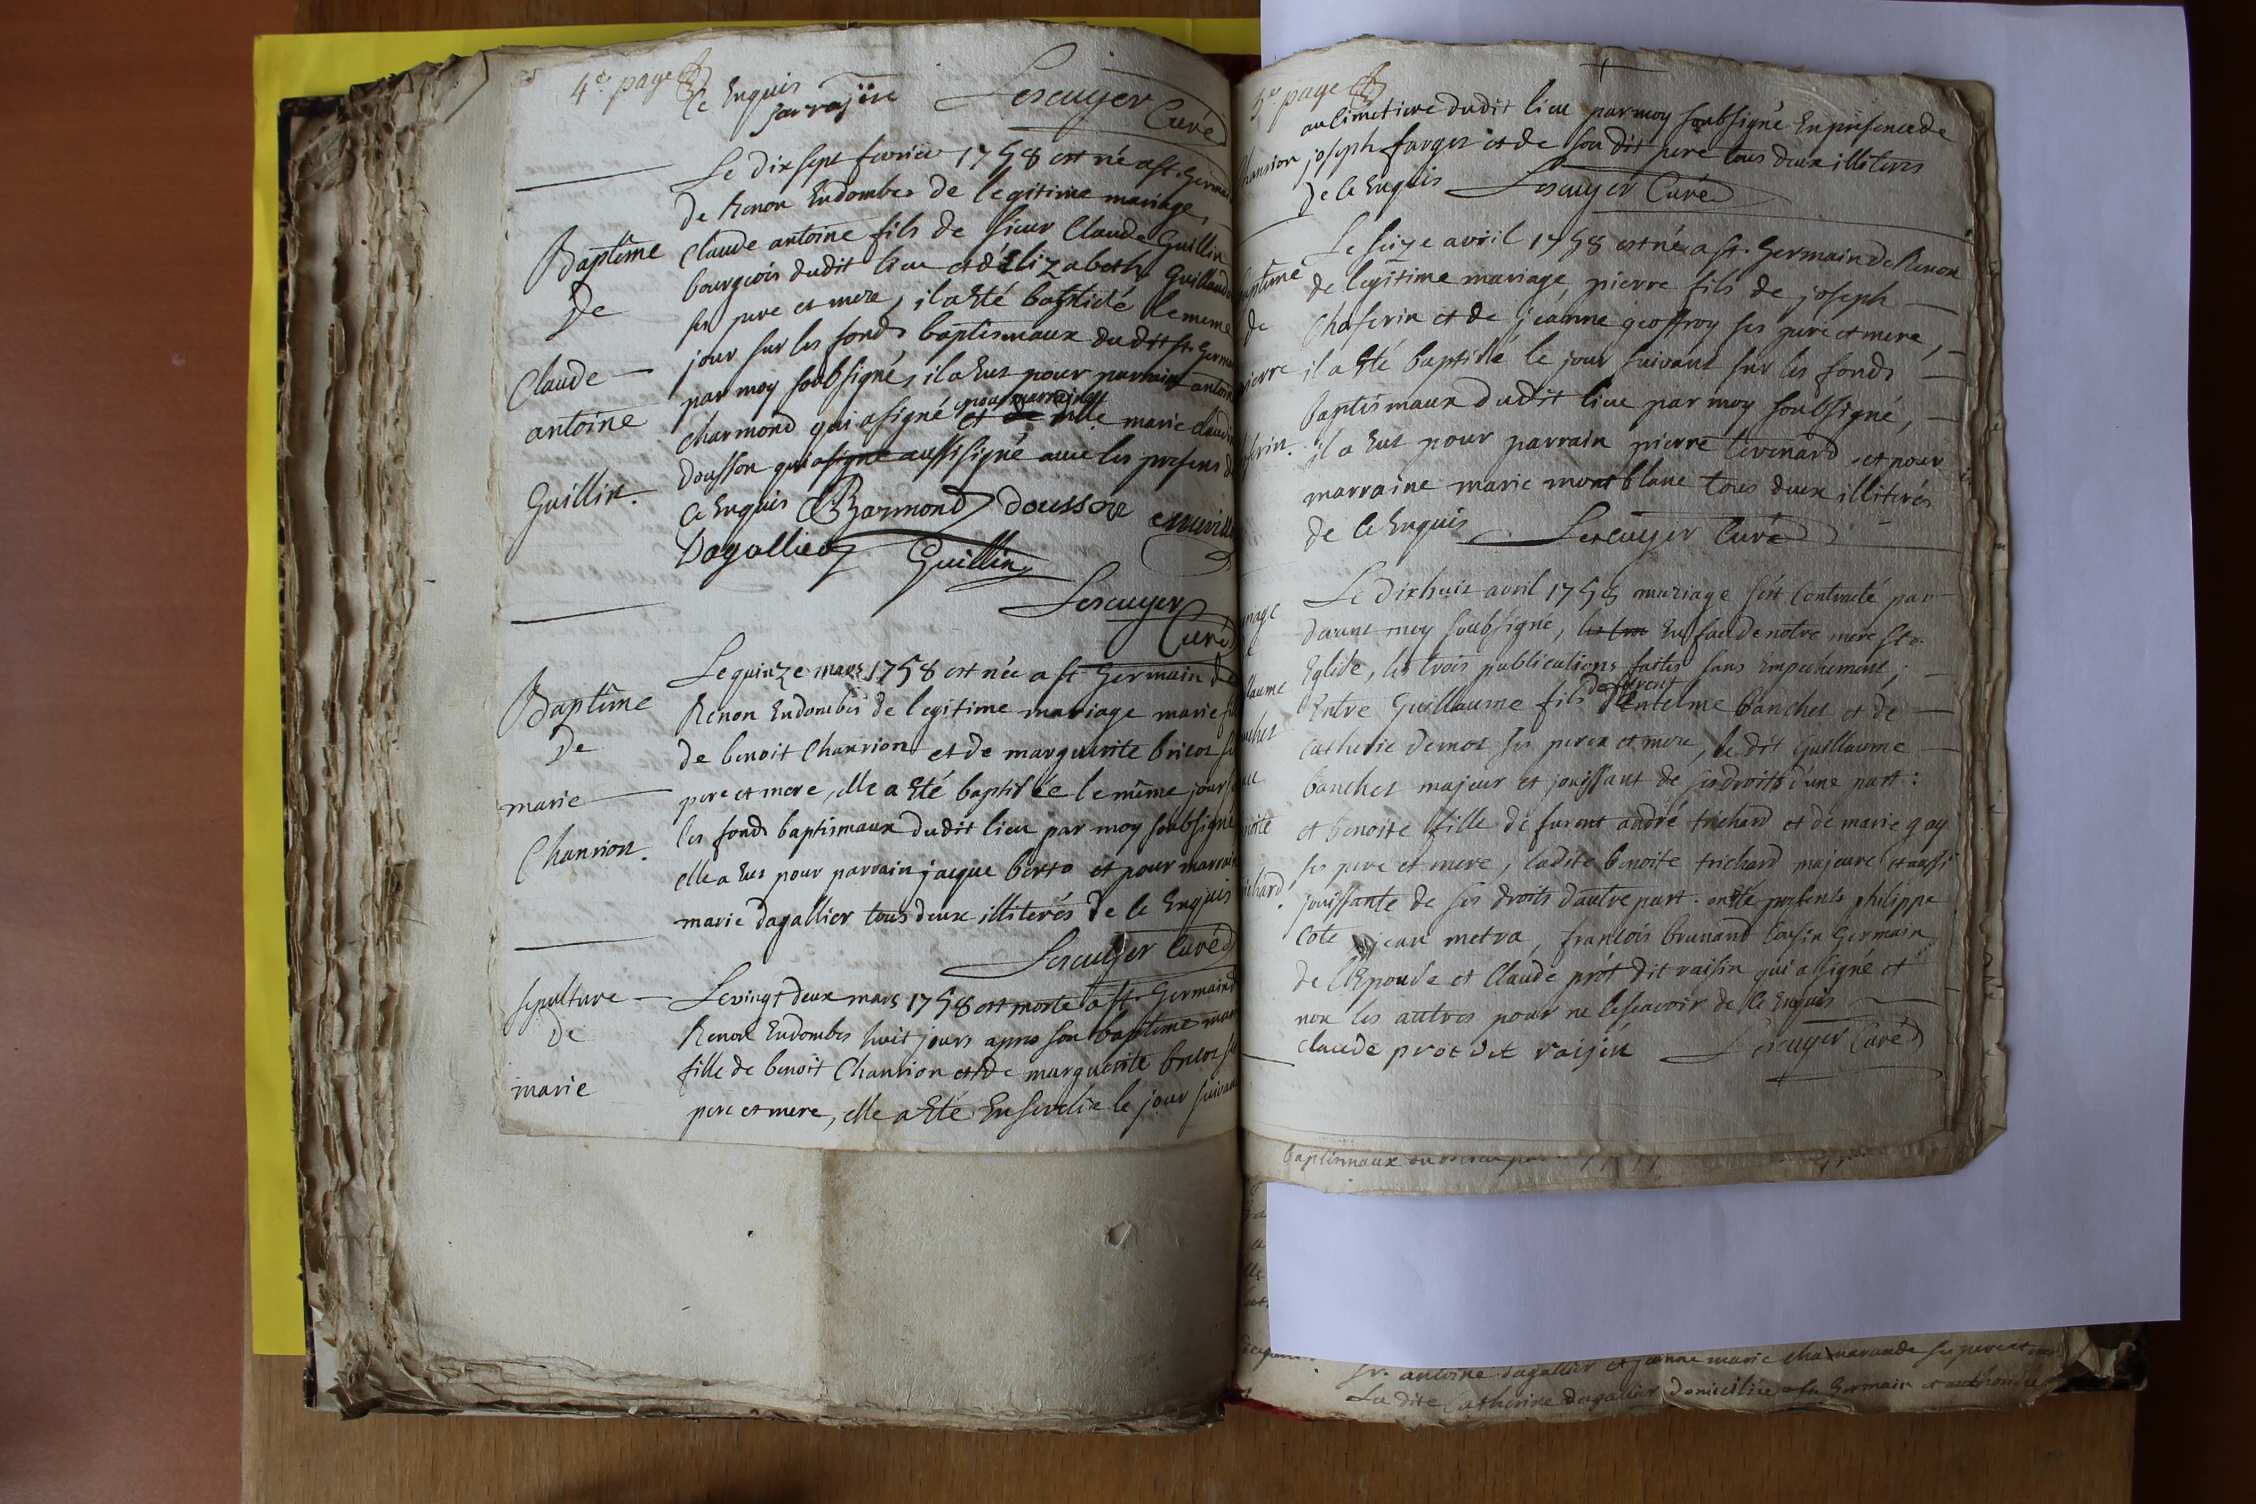 4e page
ce Enquis
sarrajin Lescuyer
Curé
Le dix sept fevrier 1758 est né a st. Germain
de Renon Endombes de legitime mariage,
Baptême
De
Claude
antoine
Guillin.
Claude antoine fils de sieur Claude Guillin
bourgeois dudit lieu et d'Elizabeth Guillaud
ses pere et mere, il a Eté baptisé le meme
jour sur les fonds baptismaux dudit st. Germain
par moy soubsigné, il a Eut pour parrain antoine
charmond qui a signé et pour marraine mlle marie claudine
dousson qui a signé aussi signé avec les presens de
ce Enquis Charmond doussore
Dagallier Guillin
Lescuyer
Curé
Baptême
De
marie
Chanrion.
Le quinze mars 1758 est née a st Germain de
Renon Endombes de legitime mariage marie fille
de benoit Chanrion et de marguerite bricot ses
pere et mere, elle a Eté baptisée le même jour sur
les fonds baptismaux dudit lieu par moy soubsigné
elle a Eut pour parrain jacque berto et pour marraine
marie dagallier tous deux illiterés de ce Enquis
Lescuyer Curé
sepulture
De
marie
Le vingt deux mars 1758 est morte a st. Germain de
Renon Endombes huit jours apres son baptême marie
fille de benoit Chanrion et de marguerite bricot ses
pere et mere, elle a Eté Ensevelie le jour suivant
5e page
Chanrion
au cimetiere dudit lieu par moy soubsigné En presence de
joseph farges et de son dit pere tous deux illiteres
de ce Enquis Lescuyer Curé
Baptême
de
pierre
Le seize avril 1758 est né a st. Germain de Renon
de legitime mariage, pierre fils de joseph
Chaferin et de jeanne geoffroy ses pere et mere,
il a Eté baptisé le jour suivant sur les fonds
Baptismaux dudit lieu par moy soubsigné,
il a Eut pour parrain pierre tevenard et pour
marraine marie montblanc tous deux illiterés
de ce Enquis Lescuyer Curé
Le dixhuit avril 1758 mariage s'est contracté par
devant moy soubsigné, En face de notre mere ste.
Eglise, les trois publications faites sans Empechement,
Entre Guillaume fils de furent antelme banchet et de
catherie demot ses peres et mere, le dit Guillaume
banchet majeur et jouissant de ses droits d'une part:
et benoite fille de furent andré trichard et de marie gay
ses pere et mere, ladite benoite trichard majeure et aussi
jouissante de ses droits dautre part. ont Eté presents philippe
Cote, jean metra, francois brunand cousin Germain
de l'Epouse et Claude prôt dit raisin qui a signé et
non les autres pour ne le scavoir de ce Enquis
claude prot dit raisin Lescuyer Curé
baptismaux
sr. antoine dagallier et jeanne marie chamarande ses pere et
La dite Catherine dagallier domiciliée a st. Germain